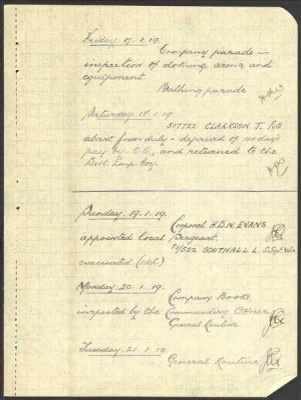 Friday 17.1.19.
Company parade -
inspection of clothing, arms, and
equipment
Bathing parade
Saturday 18.1.19.
51722 CLARKSON T. Pte
absent from duty - deprived of 14 days
pay by C.O., and returned to the
Divl. Emp. Coy.
Sunday. 19.1.19.
Corporal H.B.N. EVANS
appointed local Sergeant.
SOUTHALL L. S.Sgt
evacuated (sick)
Monday. 20.1.19.
Company Books
inspected by the Commanding Officer
General Routine
Tuesday. 21.1.19
General Routine